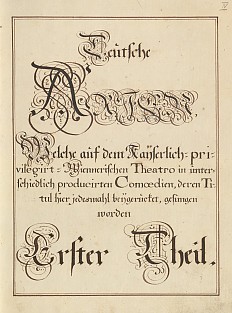 Teütsche
ARIEN,
Welche auf dem Kaÿserlich= pri-
vilegirt= Wiennerischen Theatro in unter-
schiedlich producirten Comœdien, deren Ti-
tul hier jedesmahl beÿgerücket, gesungen
worden
Erster Theil.